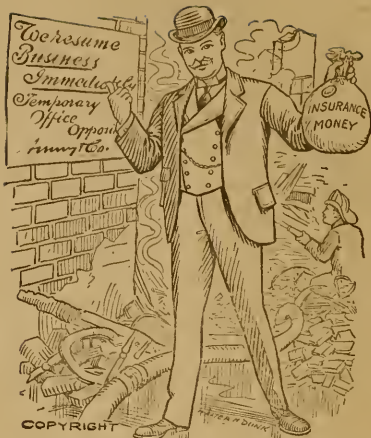 We resume
Business
Immediately
Temporary
Office
& Co.
INSURANCE
MONEY
COPYRIGHT